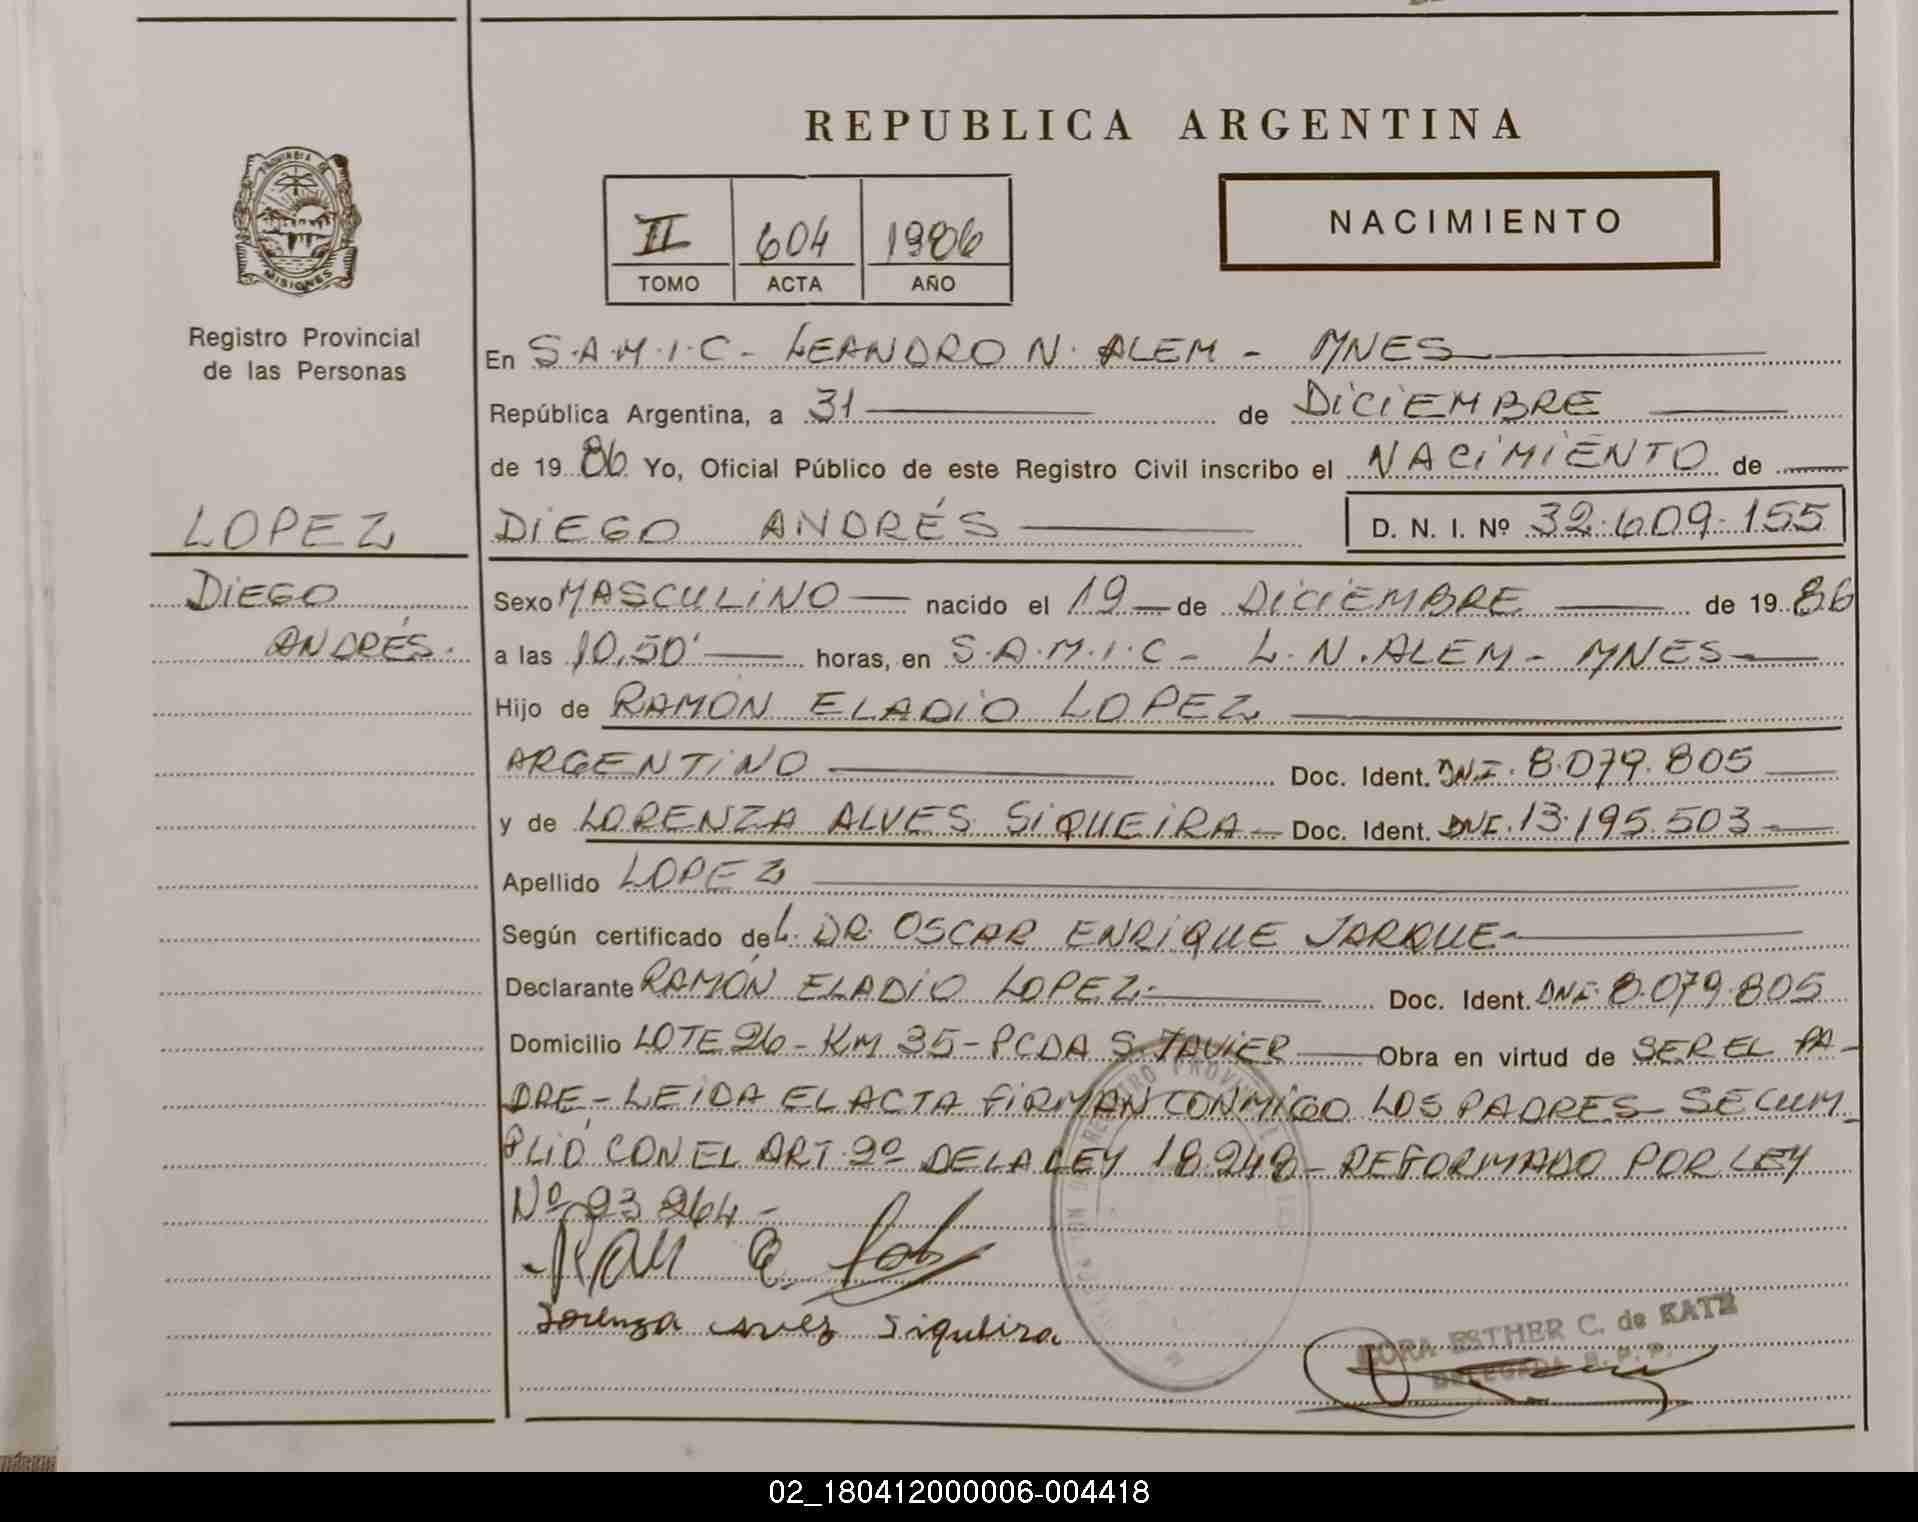 REPUBLICA ARGENTINA
PROVINCIA DE
MISIONES
Registro Provincial
de las Personas
II 604 1986
TOMO ACTA AÑO
NACIMIENTO
En S.A.M.I.C - LEANDRO N. ALEM - MNES
República Argentina, a 31 de DICIEMBRE
de 19 86 Yo, Oficial Público de este Registro Civil inscribo el NACIMIENTO de
LOPEZ
DIEGO
ANDRÉS.
DIEGO ANDRÉS D. N. I. Nº 32.609.155
Sexo MASCULINO nacido el 19 de DICIEMBRE de 19 86
a las 10,50' horas, en S.A.M.I.C - L.N.ALEM - MNES
Hijo de RAMÓN ELADIO LOPEZ
ARGENTINO Doc. Ident. DNI. 8.079.805
y de LORENZA ALVES SIQUEIRA Doc. Ident. DNI. 13.195.503
Apellido LOPEZ
Según certificado del DR. OSCAR ENRIQUE JARQUE
Declarante RAMÓN ELADIO LOPEZ Doc. Ident. DNI 8.079.805
Domicilio LOTE 26 - KM 35 - PCDA S. JAVIER Obra en virtud de SER EL PA-
DRE - LEIDA EL ACTA FIRMAN CONMIGO LOS PADRES SE CUM-
PLIÓ CON EL ART. 2º DE LA LEY 18.248 - REFORMADO POR LEY
Nº 23.264 -
Ram E. Lob
Lorenza Alvez Siqueira
ESTHER C. de KATZ
DELEGADA R. P. P.
02_180412000006-004418